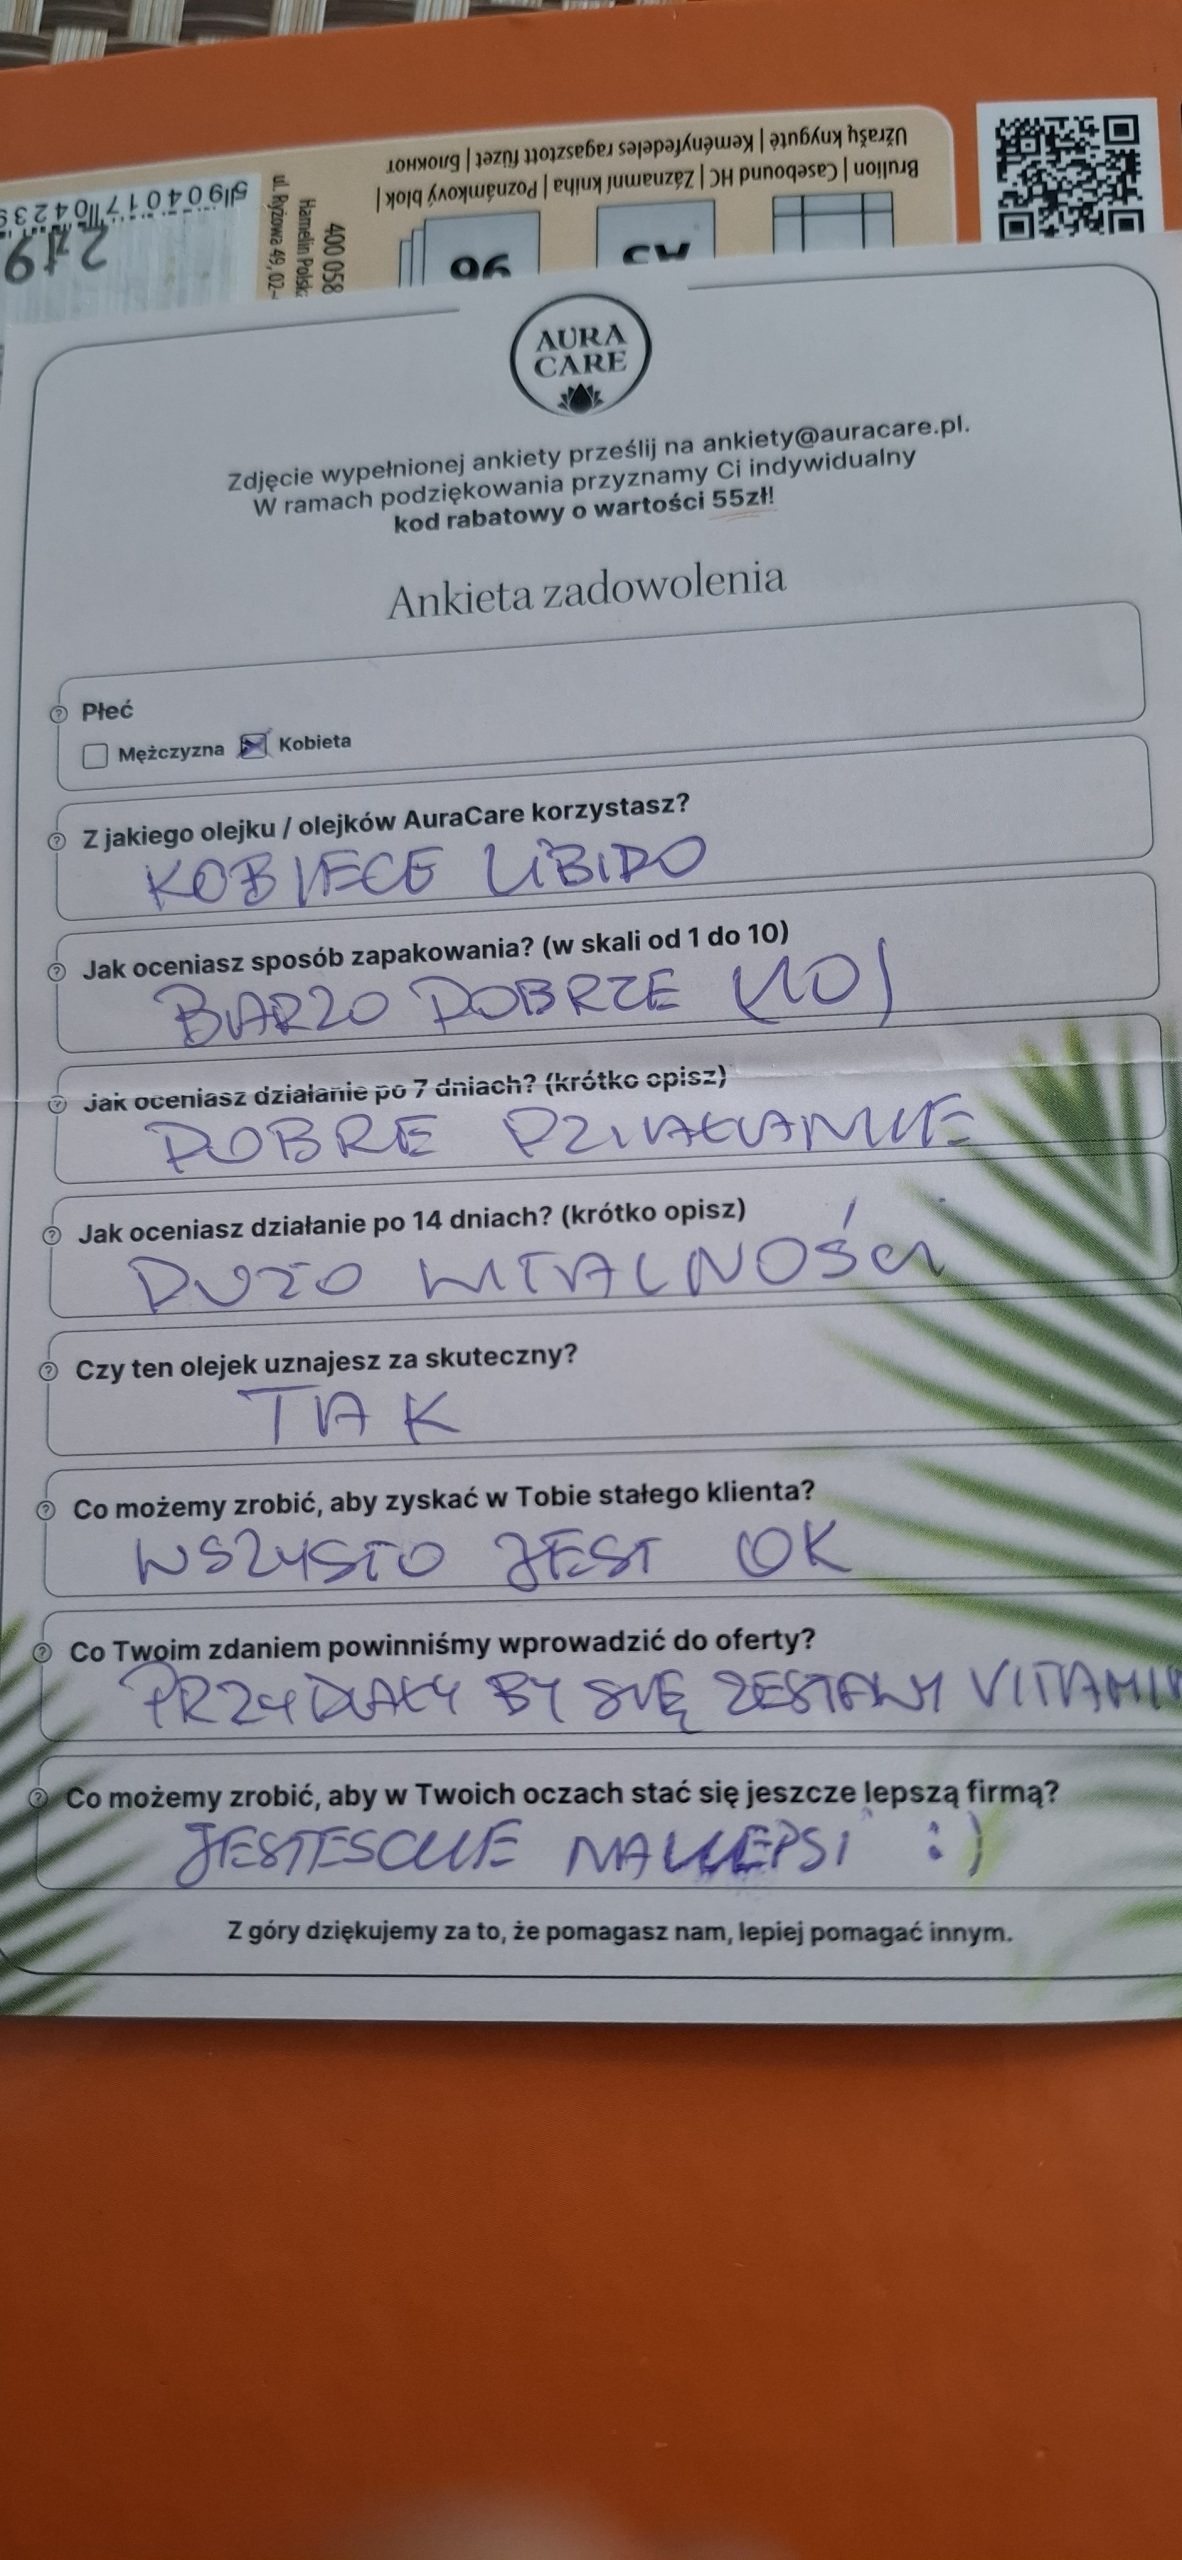 Užrašų knygutė | Keményfedeles ragasztott füzet | Блокнот
Brulion | Casebound HC | Záznamní kniha | Poznámkový blok |
400 058
Hamelin Polska
ul. Ryżowa 49, 02-
5 904017 04239
2 zł 9
96
A5
AURA
CARE
Zdjęcie wypełnionej ankiety prześlij na ankiety@auracare.pl.
W ramach podziękowania przyznamy Ci indywidualny
kod rabatowy o wartości 55zł!
Ankieta zadowolenia
Płeć
Mężczyzna Kobieta
Z jakiego olejku / olejków AuraCare korzystasz?
KOBIECE LIBIDO
Jak oceniasz sposób zapakowania? (w skali od 1 do 10)
BARZO DOBRZE (10)
Jak oceniasz działanie po 7 dniach? (krótko opisz)
DOBRE DZIAŁANIE
Jak oceniasz działanie po 14 dniach? (krótko opisz)
DUŻO WITALNOŚCI
Czy ten olejek uznajesz za skuteczny?
TAK
Co możemy zrobić, aby zyskać w Tobie stałego klienta?
WSZYSTO JEST OK
Co Twoim zdaniem powinniśmy wprowadzić do oferty?
PRZYDAŁY BY SIĘ ZESTAWY VITAMIN
Co możemy zrobić, aby w Twoich oczach stać się jeszcze lepszą firmą?
JESTESCIE NAJLEPSI :)
Z góry dziękujemy za to, że pomagasz nam, lepiej pomagać innym.